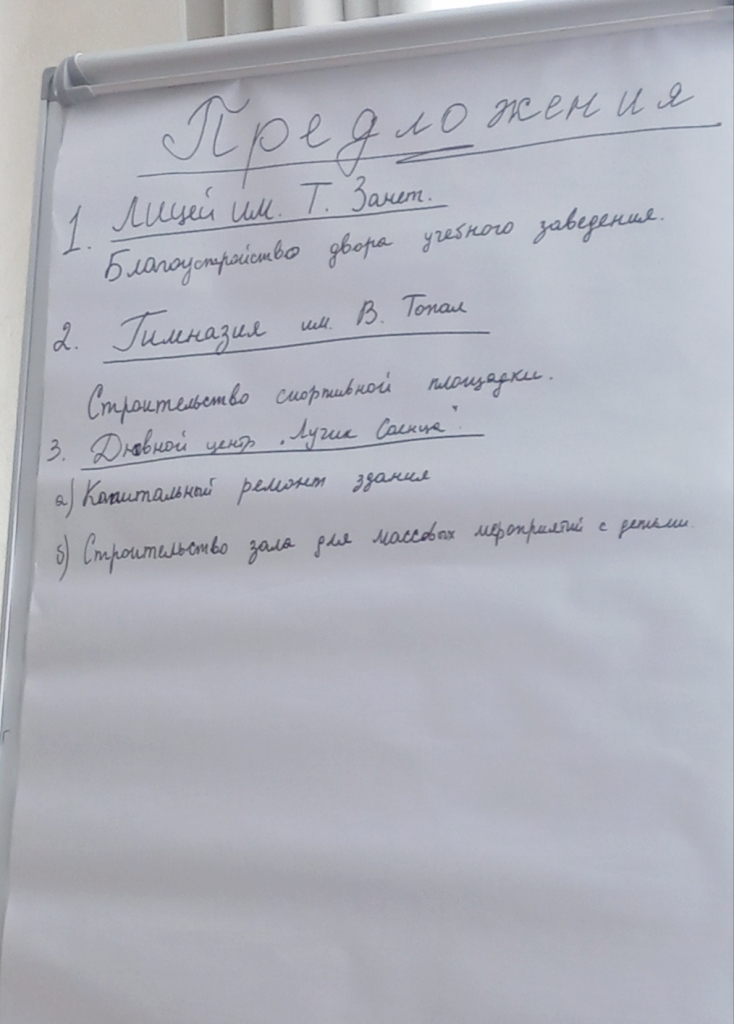 Предложения
1. Лицей им. Т. Занет.
Благоустройство двора учебного заведения.
2. Гимназия им. В. Топал
Строительство спортивной площадки.
3. Дневной центр „Лучик Солнца".
а) Капитальный ремонт здания
б) Строительство зала для массовых мероприятий с детьми.